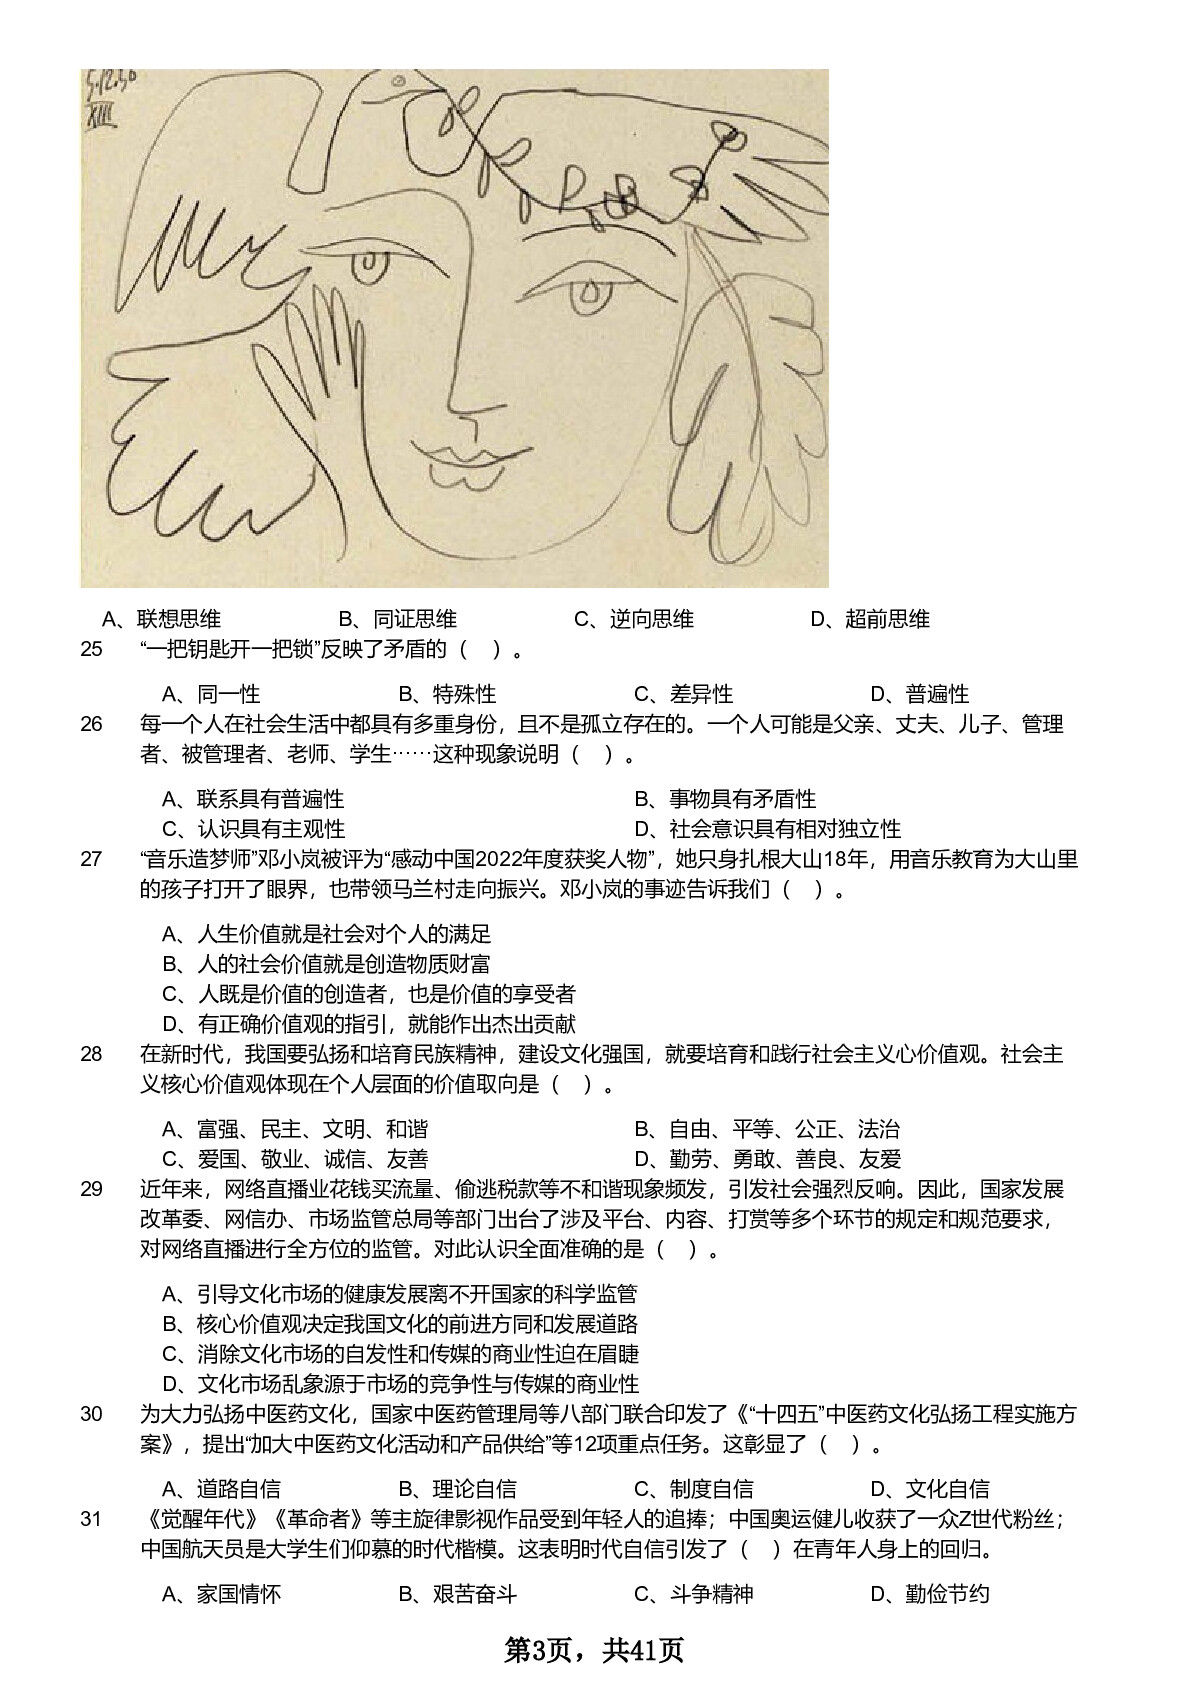 5.12.50
XIII
A、联想思维 B、同证思维 C、逆向思维 D、超前思维
25 “一把钥匙开一把锁”反映了矛盾的（ ）。
A、同一性 B、特殊性 C、差异性 D、普遍性
26 每一个人在社会生活中都具有多重身份，且不是孤立存在的。一个人可能是父亲、丈夫、儿子、管理
者、被管理者、老师、学生……这种现象说明（ ）。
A、联系具有普遍性 B、事物具有矛盾性
C、认识具有主观性 D、社会意识具有相对独立性
27 “音乐造梦师”邓小岚被评为“感动中国2022年度获奖人物”，她只身扎根大山18年，用音乐教育为大山里
的孩子打开了眼界，也带领马兰村走向振兴。邓小岚的事迹告诉我们（ ）。
A、人生价值就是社会对个人的满足
B、人的社会价值就是创造物质财富
C、人既是价值的创造者，也是价值的享受者
D、有正确价值观的指引，就能作出杰出贡献
28 在新时代，我国要弘扬和培育民族精神，建设文化强国，就要培育和践行社会主义心价值观。社会主
义核心价值观体现在个人层面的价值取向是（ ）。
A、富强、民主、文明、和谐 B、自由、平等、公正、法治
C、爱国、敬业、诚信、友善 D、勤劳、勇敢、善良、友爱
29 近年来，网络直播业花钱买流量、偷逃税款等不和谐现象频发，引发社会强烈反响。因此，国家发展
改革委、网信办、市场监管总局等部门出台了涉及平台、内容、打赏等多个环节的规定和规范要求，
对网络直播进行全方位的监管。对此认识全面准确的是（ ）。
A、引导文化市场的健康发展离不开国家的科学监管
B、核心价值观决定我国文化的前进方同和发展道路
C、消除文化市场的自发性和传媒的商业性迫在眉睫
D、文化市场乱象源于市场的竞争性与传媒的商业性
30 为大力弘扬中医药文化，国家中医药管理局等八部门联合印发了《“十四五”中医药文化弘扬工程实施方
案》，提出“加大中医药文化活动和产品供给”等12项重点任务。这彰显了（ ）。
A、道路自信 B、理论自信 C、制度自信 D、文化自信
31 《觉醒年代》《革命者》等主旋律影视作品受到年轻人的追捧；中国奥运健儿收获了一众Z世代粉丝；
中国航天员是大学生们仰慕的时代楷模。这表明时代自信引发了（ ）在青年人身上的回归。
A、家国情怀 B、艰苦奋斗 C、斗争精神 D、勤俭节约
第3页，共41页